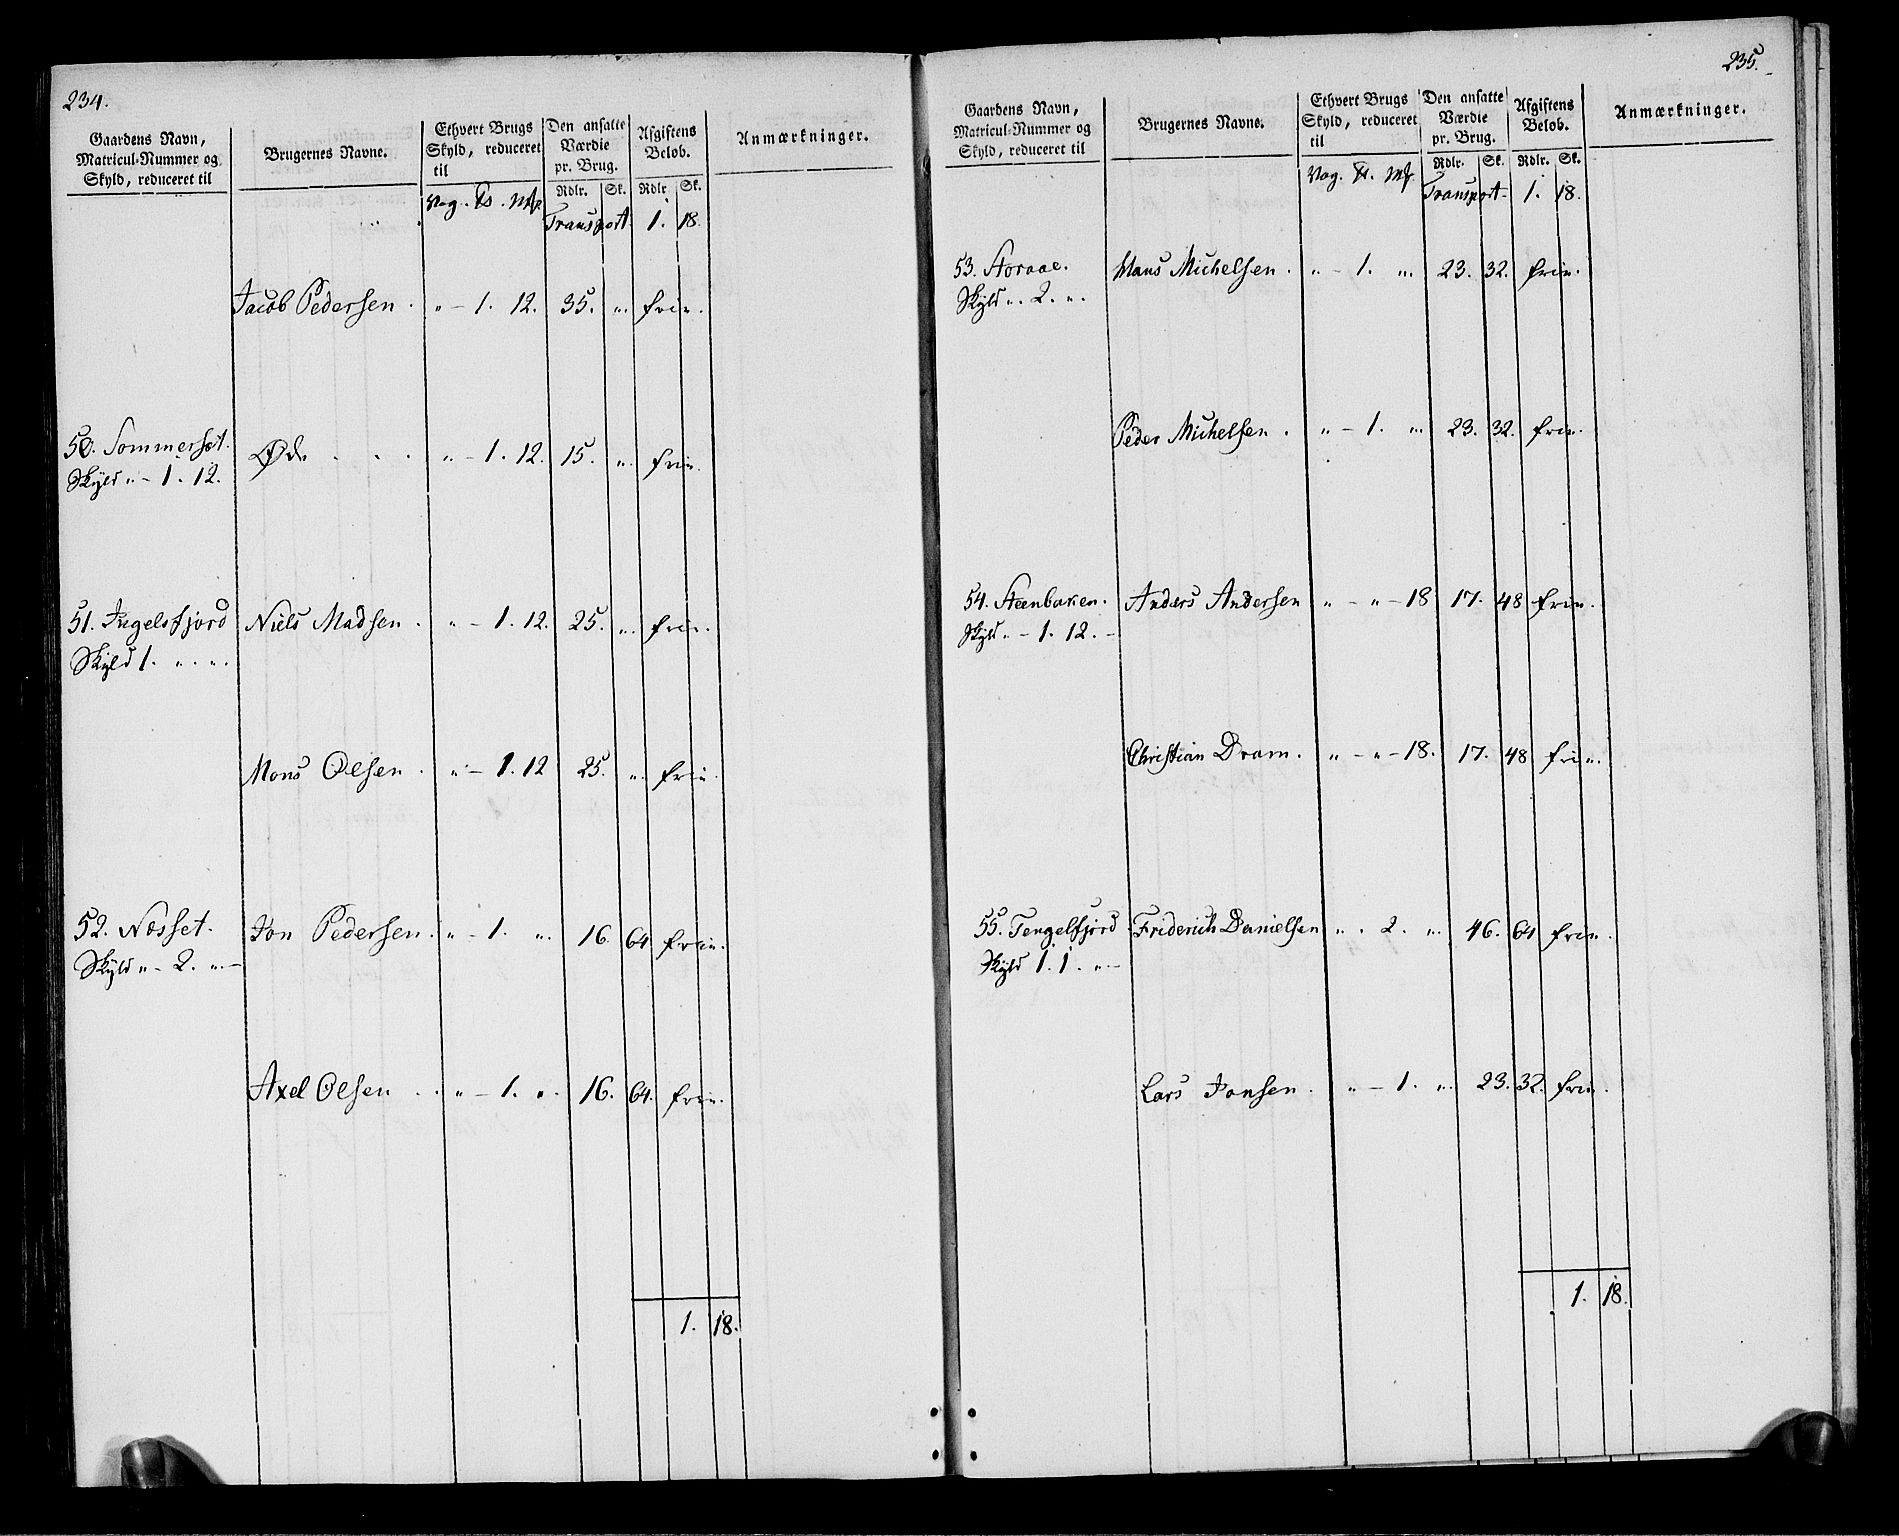 234.
Gaardens Navn, Matricul-Nummer og Skyld, reduceret til | Brugernes Navne. | Ethvert Brugs Skyld, reduceret til | Den ansatte Værdie pr. Brug. | Afgiftens Beløb. | Anmærkninger.
Vog. Mk. | Rdlr. | Sk. | Rdlr. | Sk.
Transport. 1. 18.
Jacob Pedersen. „ - 1. 12. 35. „. frie.
50. Sommerset. Øde . . . „ - 1. 12. 15. „. frie.
Skyld „ - 1. 12.
51. Ingelsfjord Niels Madsen. „ - 1. 12. 25. „. frie.
Skyld 1. „. „.
Mons Olsen. „ - 1. 12 25. „. frie.
52. Nœsset. Jon Pedersen. „ - 1. „. 16. 64. frie.
Skyld „ - 2. „. -
Axel Olsen . . „ - 1. „. 16. 64. frie.
1. 18.
235.
Gaardens Navn, Matricul-Nummer og Skyld, reduceret til | Brugernes Navne. | Ethvert Brugs Skyld, reduceret til | Den ansatte Værdie pr. Brug. | Afgiftens Beløb. | Anmærkninger.
Vog. Mk. | Rdlr. | Sk. | Rdlr. | Sk.
Transport. 1. 18.
53. Storaae. Hans Michelsen. „ - 1. „. 23. 32. frie.
Skyld „. 2. „.
Peder Michelsen. „ - 1. „. 23. 32. frie.
54. Steenbaken. Anders Andersen „ - „ - 18 17. 48 frie.
Skyld „ - 1. 12. -
Christian Dram. „ - „ - 18. 17. 48 frie.
55. Tengelfjord Friderich Danielsen „. 2. „. 46. 64 frie.
Skyld 1. 1. „. -
Lars Jonsen. „ - 1. „. 23. 32. frie.
1. 18.